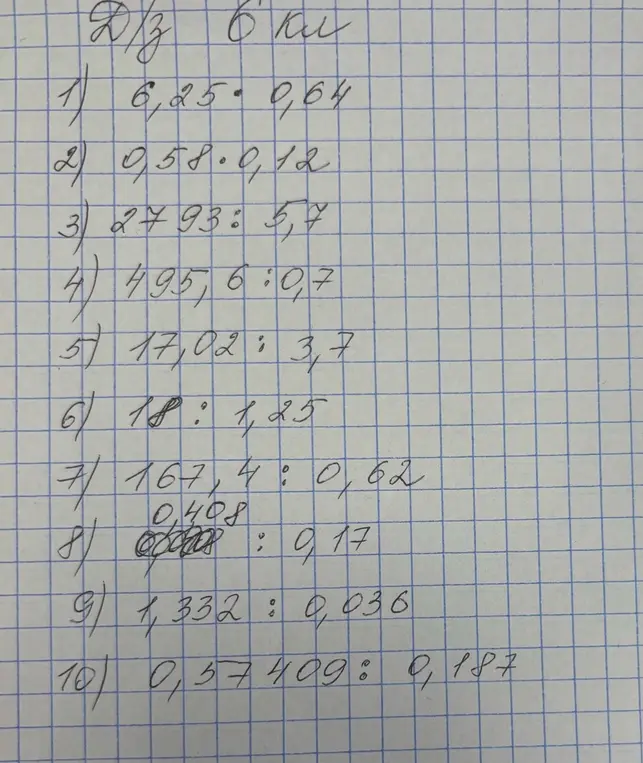 Д/з 6 кл
1) 6,25 · 0,64
2) 0,58 · 0,12
3) 2793 : 5,7
4) 495,6 : 0,7
5) 17,02 : 3,7
6) 18 : 1,25
7) 167,4 : 0,62
0,408
8) : 0,17
9) 1,332 : 0,036
10) 0,57409 : 0,187